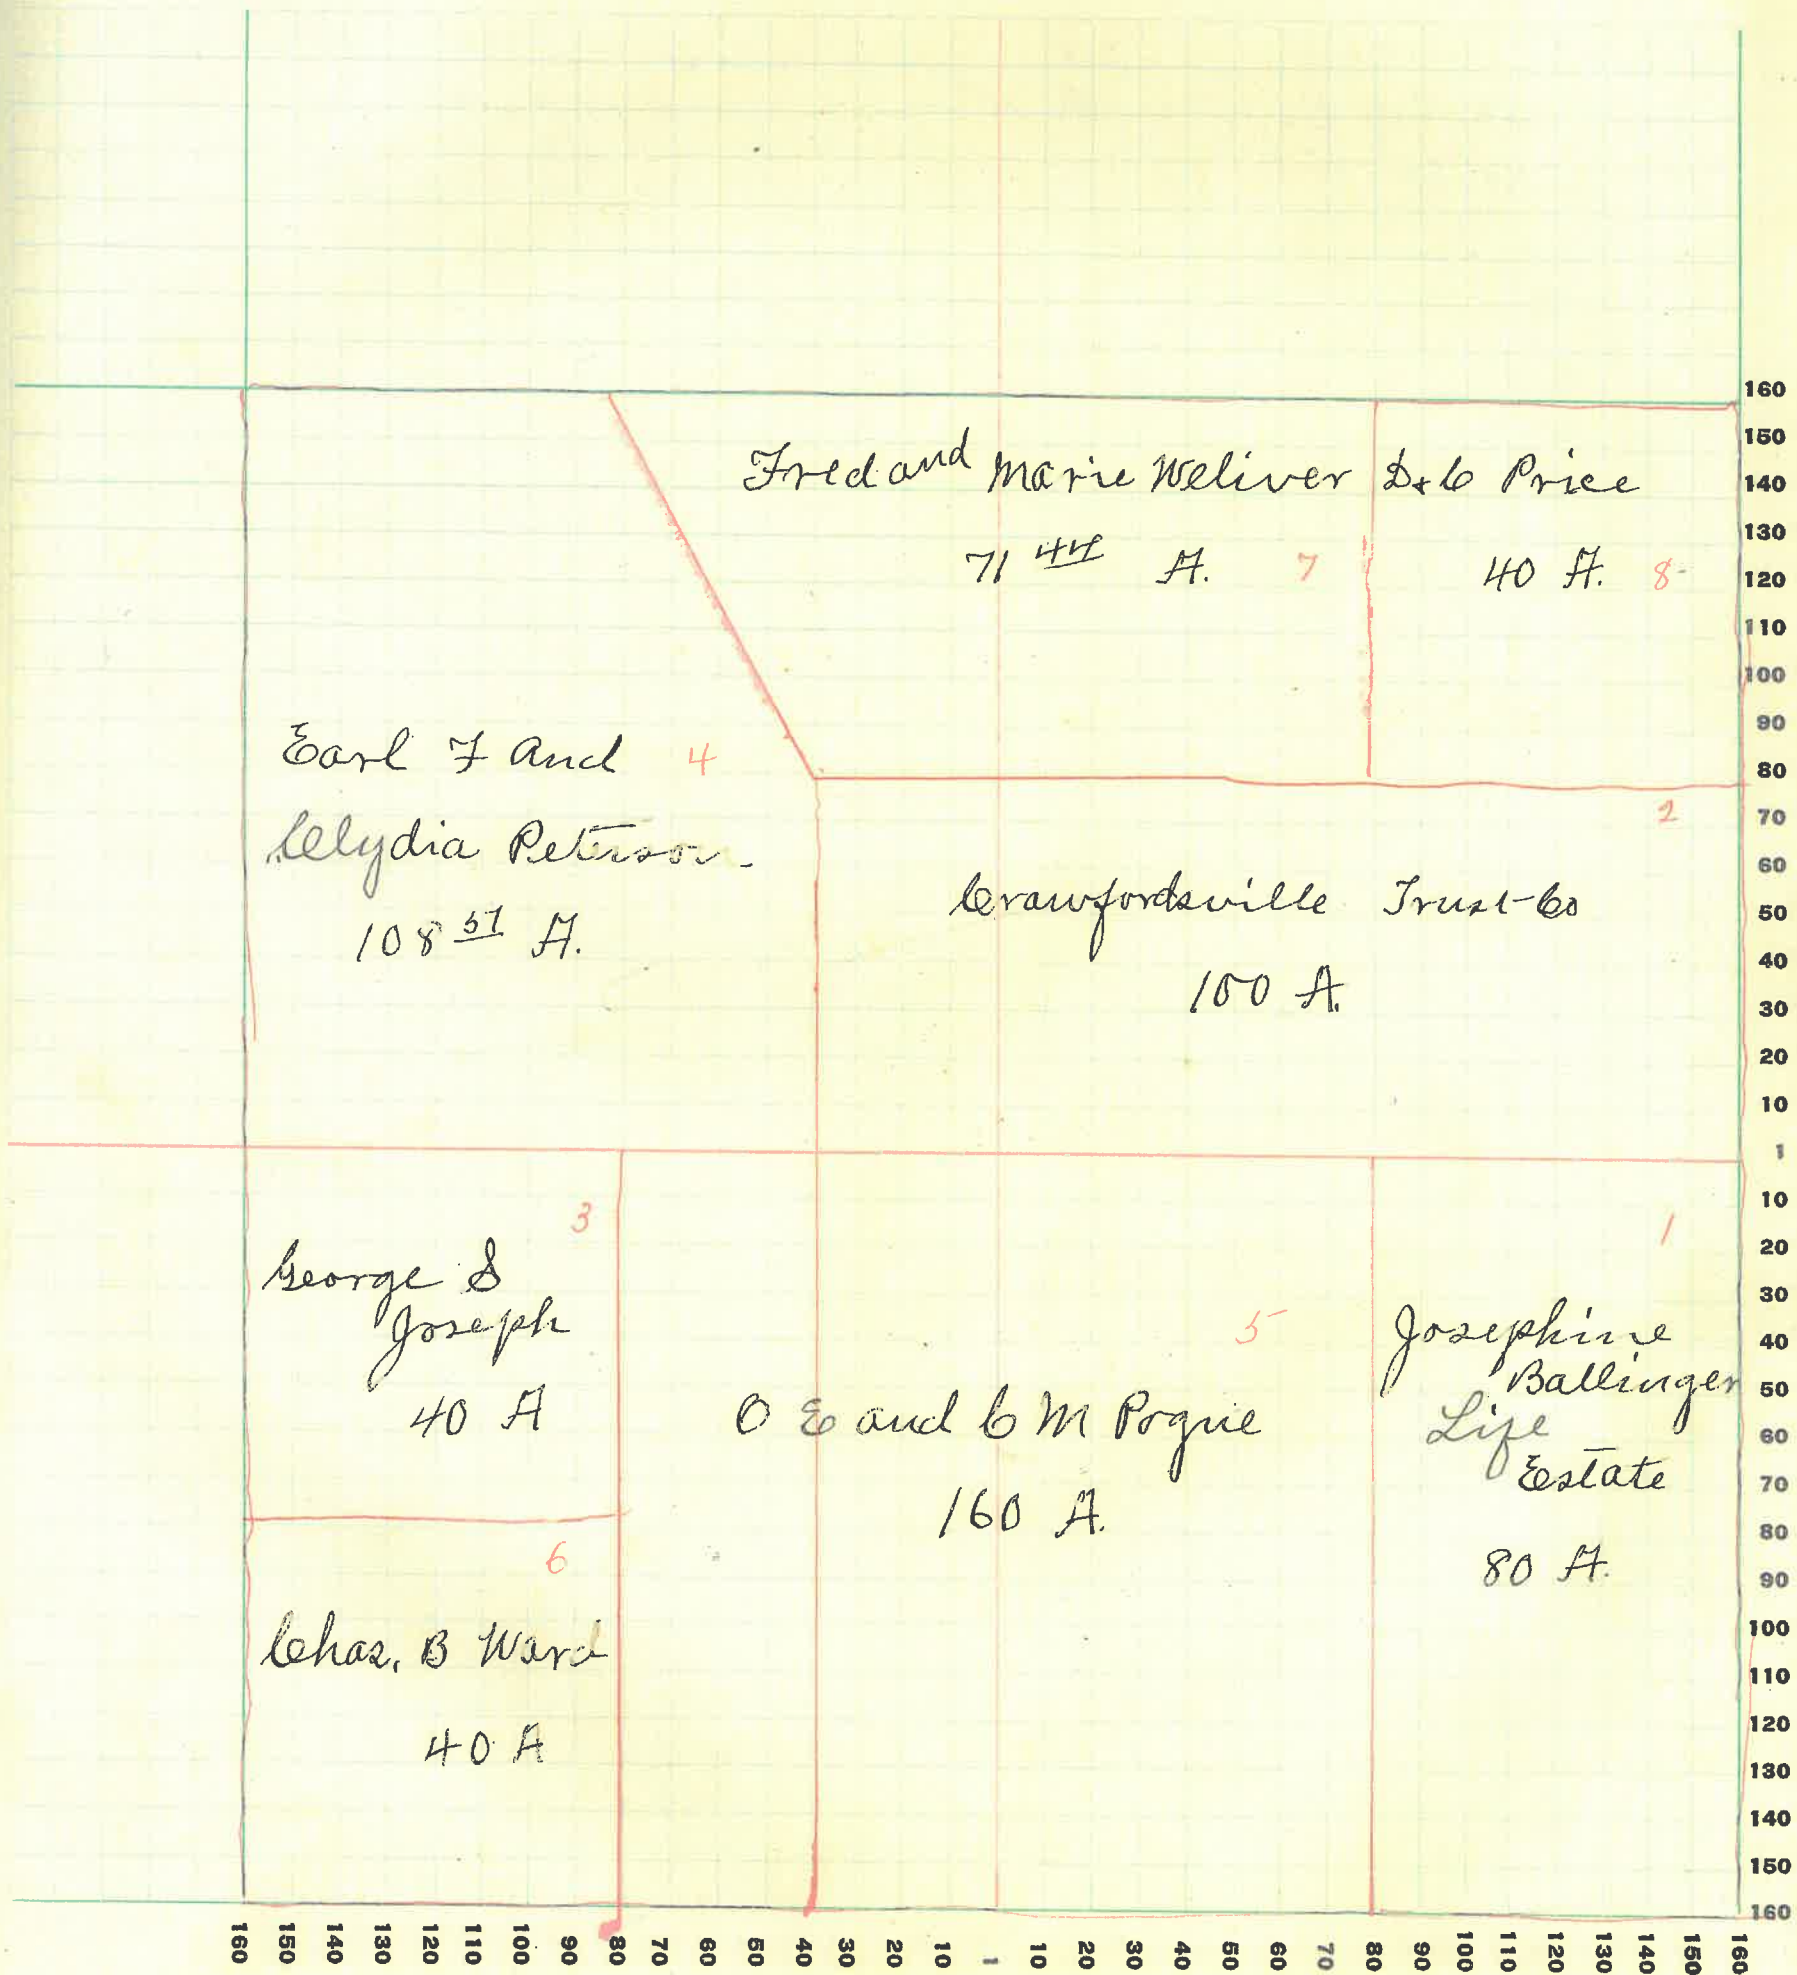 Fred and Marie Weliver
71 44 A. 7
D & C Price
40 A. 8
Earl F and 4
Clydia Peterson
108 57 A.
2
Crawfordsville Trust Co
100 A.
3
George S
Joseph
40 A
5
O E and C M Pogue
160 A.
1
Josephine
Ballinger
Life
Estate
80 A.
6
Chas. B Ward
40 A
160
150
140
130
120
110
100
90
80
70
60
50
40
30
20
10
1
10
20
30
40
50
60
70
80
90
100
110
120
130
140
150
160
160 150 140 130 120 110 100 90 80 70 60 50 40 30 20 10 1 10 20 30 40 50 60 70 80 90 100 110 120 130 140 150 160